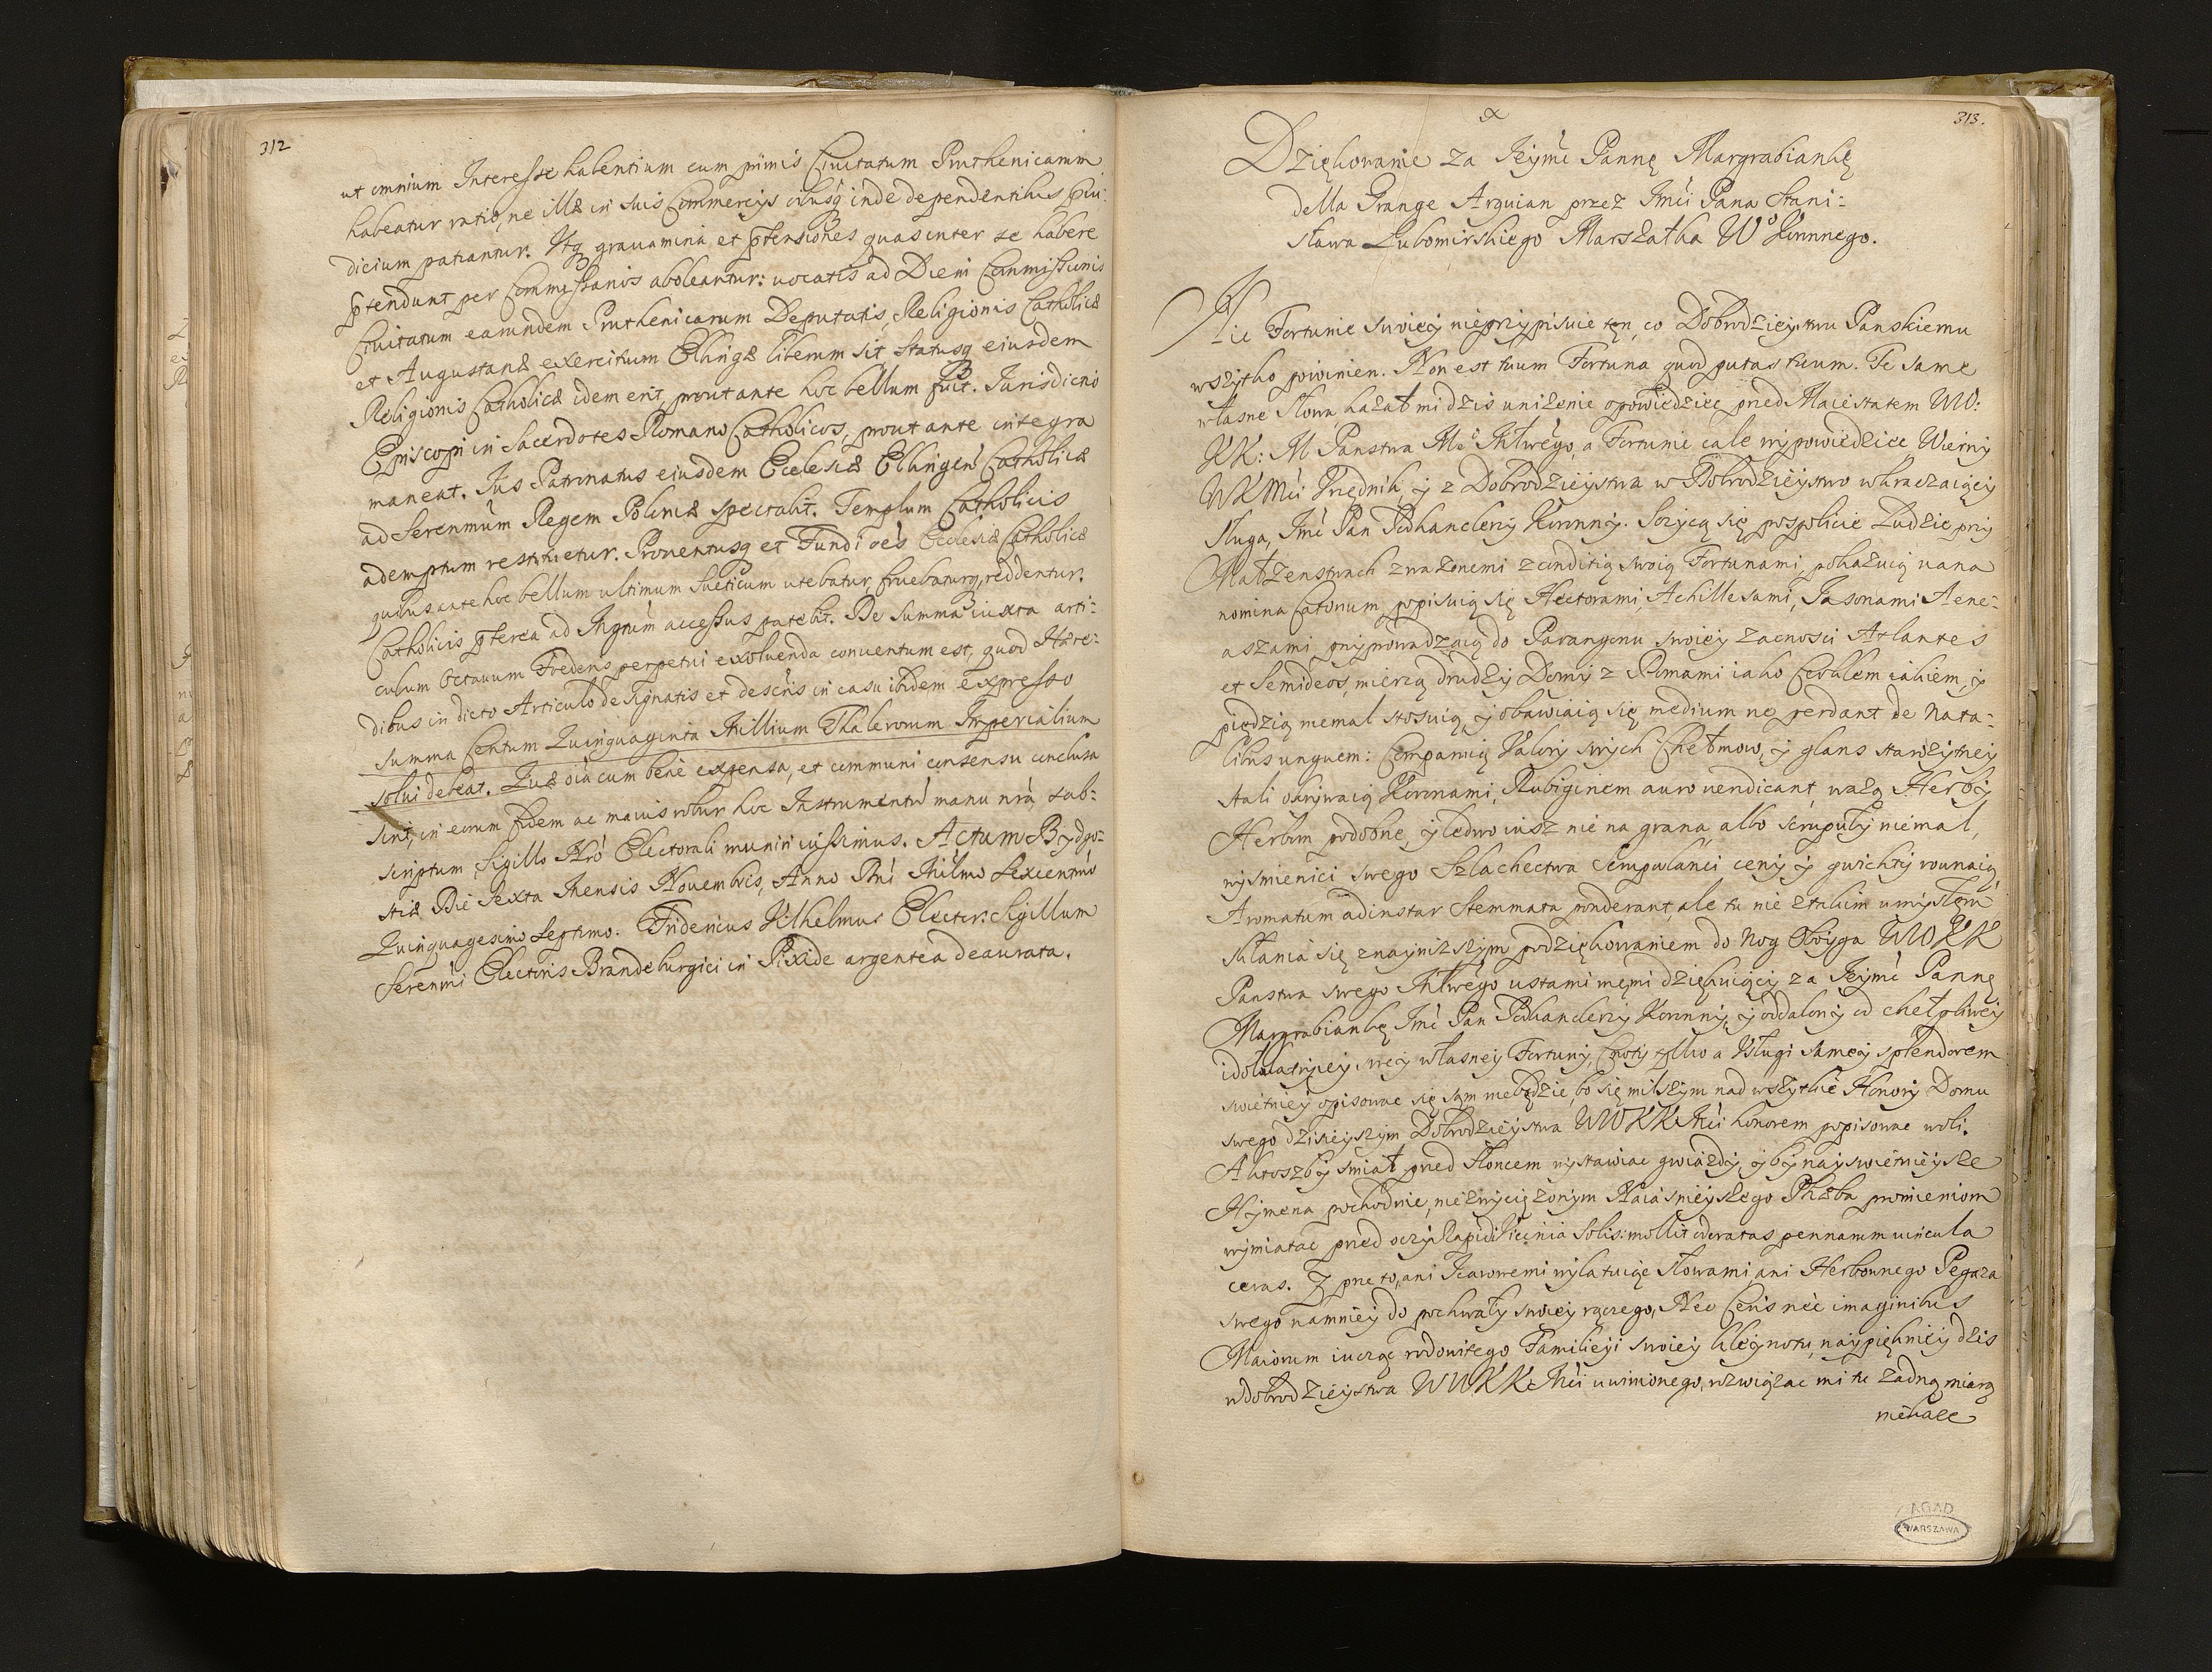 312
ut omnium Interesse habentium cum primis Ciuitatum Pruthenicarum
habeatur ratio, ne illæ in suis Commercijs oibusq inde dependentibus præiu:
dicium patiantur. Utq grauamina et prtensiones quas inter se habere
prtendunt per Commissarios aboleantur: uocatis ad Diem Commissionis
Ciuitatum earundem Pruthenicarum Deputatis, Religionis Catholicæ
et Augustanæ exercitium Elbingæ liberum sit Statusq eiusdem
Religionis Catholicæ idem erit, prout ante hoc bellum fuit. Jurisdictio
Episcopi in Sacerdotes Romano Catholicos, prout ante integra
maneat. Jus Patronatus eiusdem Ecclesiæ Elbingen Catholicæ
ad Serenmum Regem Poloniæ spectabit. Templum Catholicis
ademptum restituetur. Prouentusq et Fundi oes Ecclesiæ Catholicæ
quibus ante hoc bellum ultimum Sueticum utebatur fruebaturq, reddentur.
Catholicis prterea ad Ingtum accessus patebit. De Summa iuxta arti:
culum Octauum Foederis perpetui exoluenda conuentum est, quod Hære:
dibus in dicto Articulo designatis et descris in casu ibidem expresso
summa Centum Quinquaginta Millium Thalerorum Imperialium
solui debeat. Quæ oia cum bene expensa, et communi consensu conclusa
sint, in eorum fidem ac maius robur hoc Instrumentu manu nra sub:
scriptum, Sigillo Nro Electorali muniri iussimus. Actum Bydgo-
stiæ Die Sexta Mensis Nouembris, Anno Dni Millmo Sexcentmo
Quinquagesimo Septimo. Fridericus Wilhelmus Elector. Sigillum
Serenmi Electoris Brandeburgici in Pixide argentea deaurata.
313.
Dziękowanie za Jeymc Pannę Margrabiankę
della Grange Arquian przez Jmci Pana Stani:
sława Lubomirskiego Marszałka Wo Koronnego.
Nie Fortunie swoiey nieprzypisuie ten, co Dobrodzieystwu Panskiemu
wszytko powinien. Non est tuum Fortuna quod putas tuum. Te same
własne słowa kazał mi dzis uniżenie opowiedziec przed Maiestatem WW:
KK: M Panstwa Me Miłwego, a Fortunie cale wypowiedziec Wierny
WKMci Urzędnik, y z Dobrodzieystwa w Dobrodzieystwo wkraczaiący
sługa, Jmc Pan Podkanclerzy Koronny. Szczycą się pospolicie Ludzie przy
Małzenstwach zrażonemi z conditią swoią Fortunami, pokazuią uana
nomina Catonum, popisuią się Hectorami, Achillesami, Jasonami Aene:
aszami, przyprowadzaią do Parangonu swoiey zacnosci Atlantes
et Semideos, mierzą drudzy Domy z Rzymami iako Cyrklem iakiem, y
piędzią niemal stosuią, y obawiaią się medium ne perdant de Nata:
libus unguem: Comparuią Kolory swych Chełmow, y glans starożytney
stali okrywaią Koronami, Rubiginem auro uendicant, ważą Herby
Herbom podobne, y ledwo iusz nie na grana, albo scrupuły niemal,
wysmienici swego Szlachectwa Scrupulanci ceny y gwichty rownaią
Aromatum ad instar Stemmata ponderant, ale tu nie ztakim umysłem
skłania się z nayniższym podziękowaniem do Nog Oboyga WWKK
Panstwa swego Miłwego ustami memi dziękuiący za Jeymc Pannę
Margrabiankę Jmc Pan Podkanclerzy Koronny, y oddalony od chełpliwey
idolatryey swey własney Fortuny, Cnoty tylko a Usługi samey splendorem
swietniey opisowac się sam niebędzie, bo się milszym nad wszytkie Honory Domu
swego dzisieyszym Dobrodzieystwa WWKKMci honorem popisowac woli.
A ktoszby smiał przed słoncem wystawiac gwiazdy, y by nayswietnieysze
Hymena pochodnie, niezwyciężonym Naiasnieyszego Phæba promieniom
wymiatac przed oczy: Rapidi uicinia Solis: mollit odoratas pennarum uincula
ceras. Z prze to, ani Icarowemi wylatuiąc słowami, ani Herbownego Pegaza
swego namniey do pochwały swoiey rączego, Nec Ceris nec imaginibus
Maiorum iuczęc rodowitego Familieyi swoiey kleynotu, naypiękniey dzis
w dobrodzieystwa WWKKMci uwinionego, rozwiązac mi tu żadną miarą
niekaże
AGAD
WARSZAWA